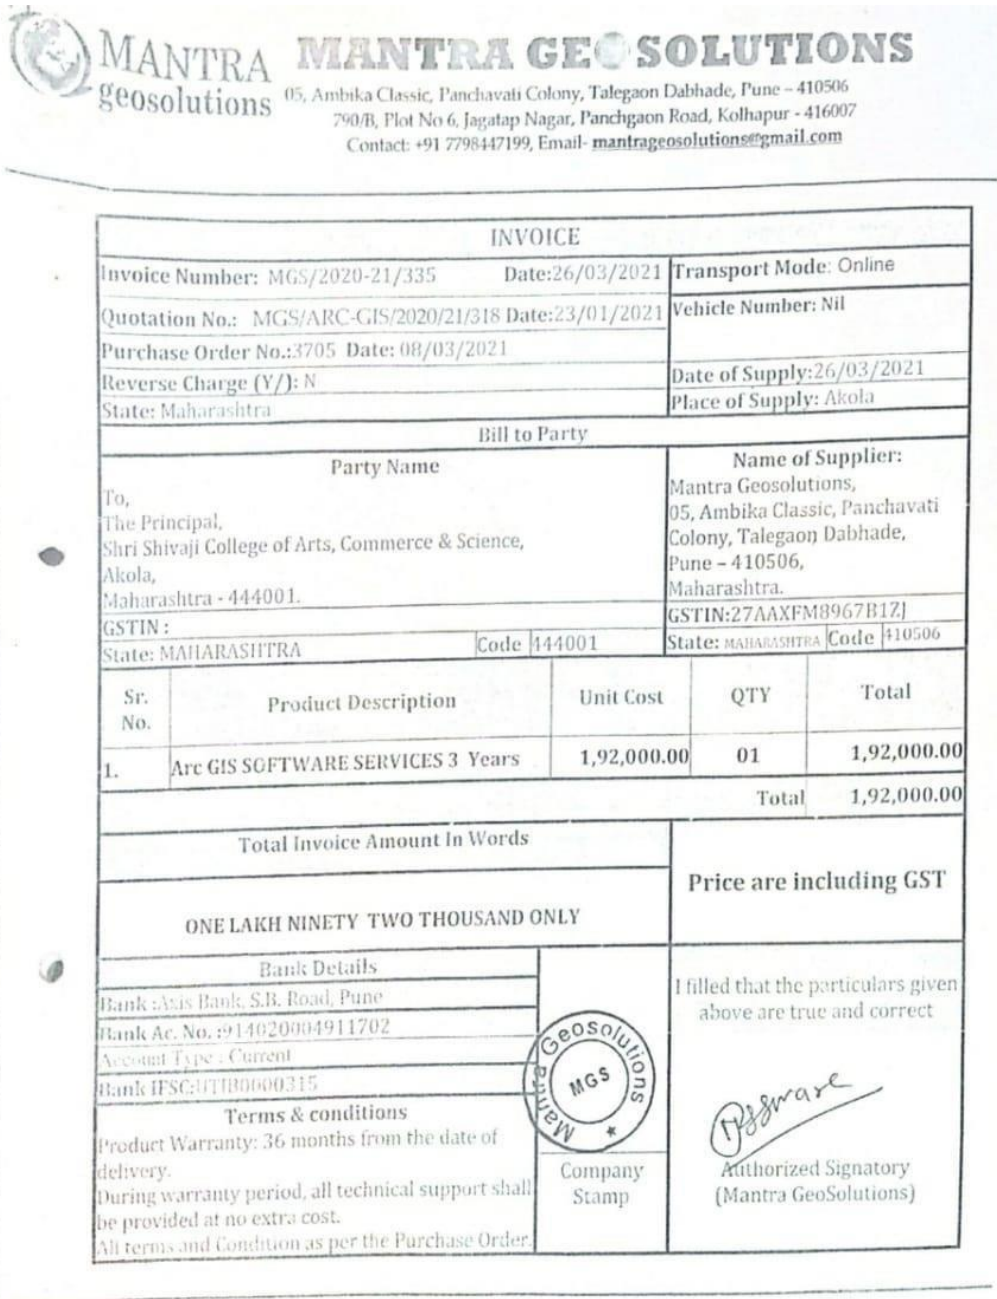 MANTRA
geosolutions
MANTRA GEOSOLUTIONS
05, Ambika Classic, Panchavati Colony, Talegaon Dabhade, Pune – 410506
790/B, Plot No 6, Jagatap Nagar, Panchgaon Road, Kolhapur - 416007
Contact: +91 7798447199, Email- mantrageosolutions@gmail.com
INVOICE
Invoice Number: MGS/2020-21/335 Date:26/03/2021
Transport Mode: Online
Quotation No.: MGS/ARC-GIS/2020/21/318 Date:23/01/2021
Vehicle Number: Nil
Purchase Order No.:3705 Date: 08/03/2021
Reverse Charge (Y/): N
Date of Supply:26/03/2021
State: Maharashtra
Place of Supply: Akola
Bill to Party
Party Name
To,
The Principal,
Shri Shivaji College of Arts, Commerce & Science,
Akola,
Maharashtra - 444001.
GSTIN :
State: MAHARASHTRA Code 444001
Name of Supplier:
Mantra Geosolutions,
05, Ambika Classic, Panchavati
Colony, Talegaon Dabhade,
Pune – 410506,
Maharashtra.
GSTIN:27AAXFM8967B1ZJ
State: MAHARASHTRA Code 410506
Sr. No. Product Description Unit Cost QTY Total
1. Arc GIS SOFTWARE SERVICES 3 Years 1,92,000.00 01 1,92,000.00
Total 1,92,000.00
Total Invoice Amount In Words
ONE LAKH NINETY TWO THOUSAND ONLY
Price are including GST
Bank Details
Bank :Axis Bank, S.B. Road, Pune
Bank Ac. No. :914020004911702
Account Type : Current
Bank IFSC:UTIB0000315
Terms & conditions
Product Warranty: 36 months from the date of
delivery.
During warranty period, all technical support shall
be provided at no extra cost.
All terms and Condition as per the Purchase Order.
Mantra Geosolutions
MGS
Company
Stamp
I filled that the particulars given
above are true and correct
Authorized Signatory
(Mantra GeoSolutions)